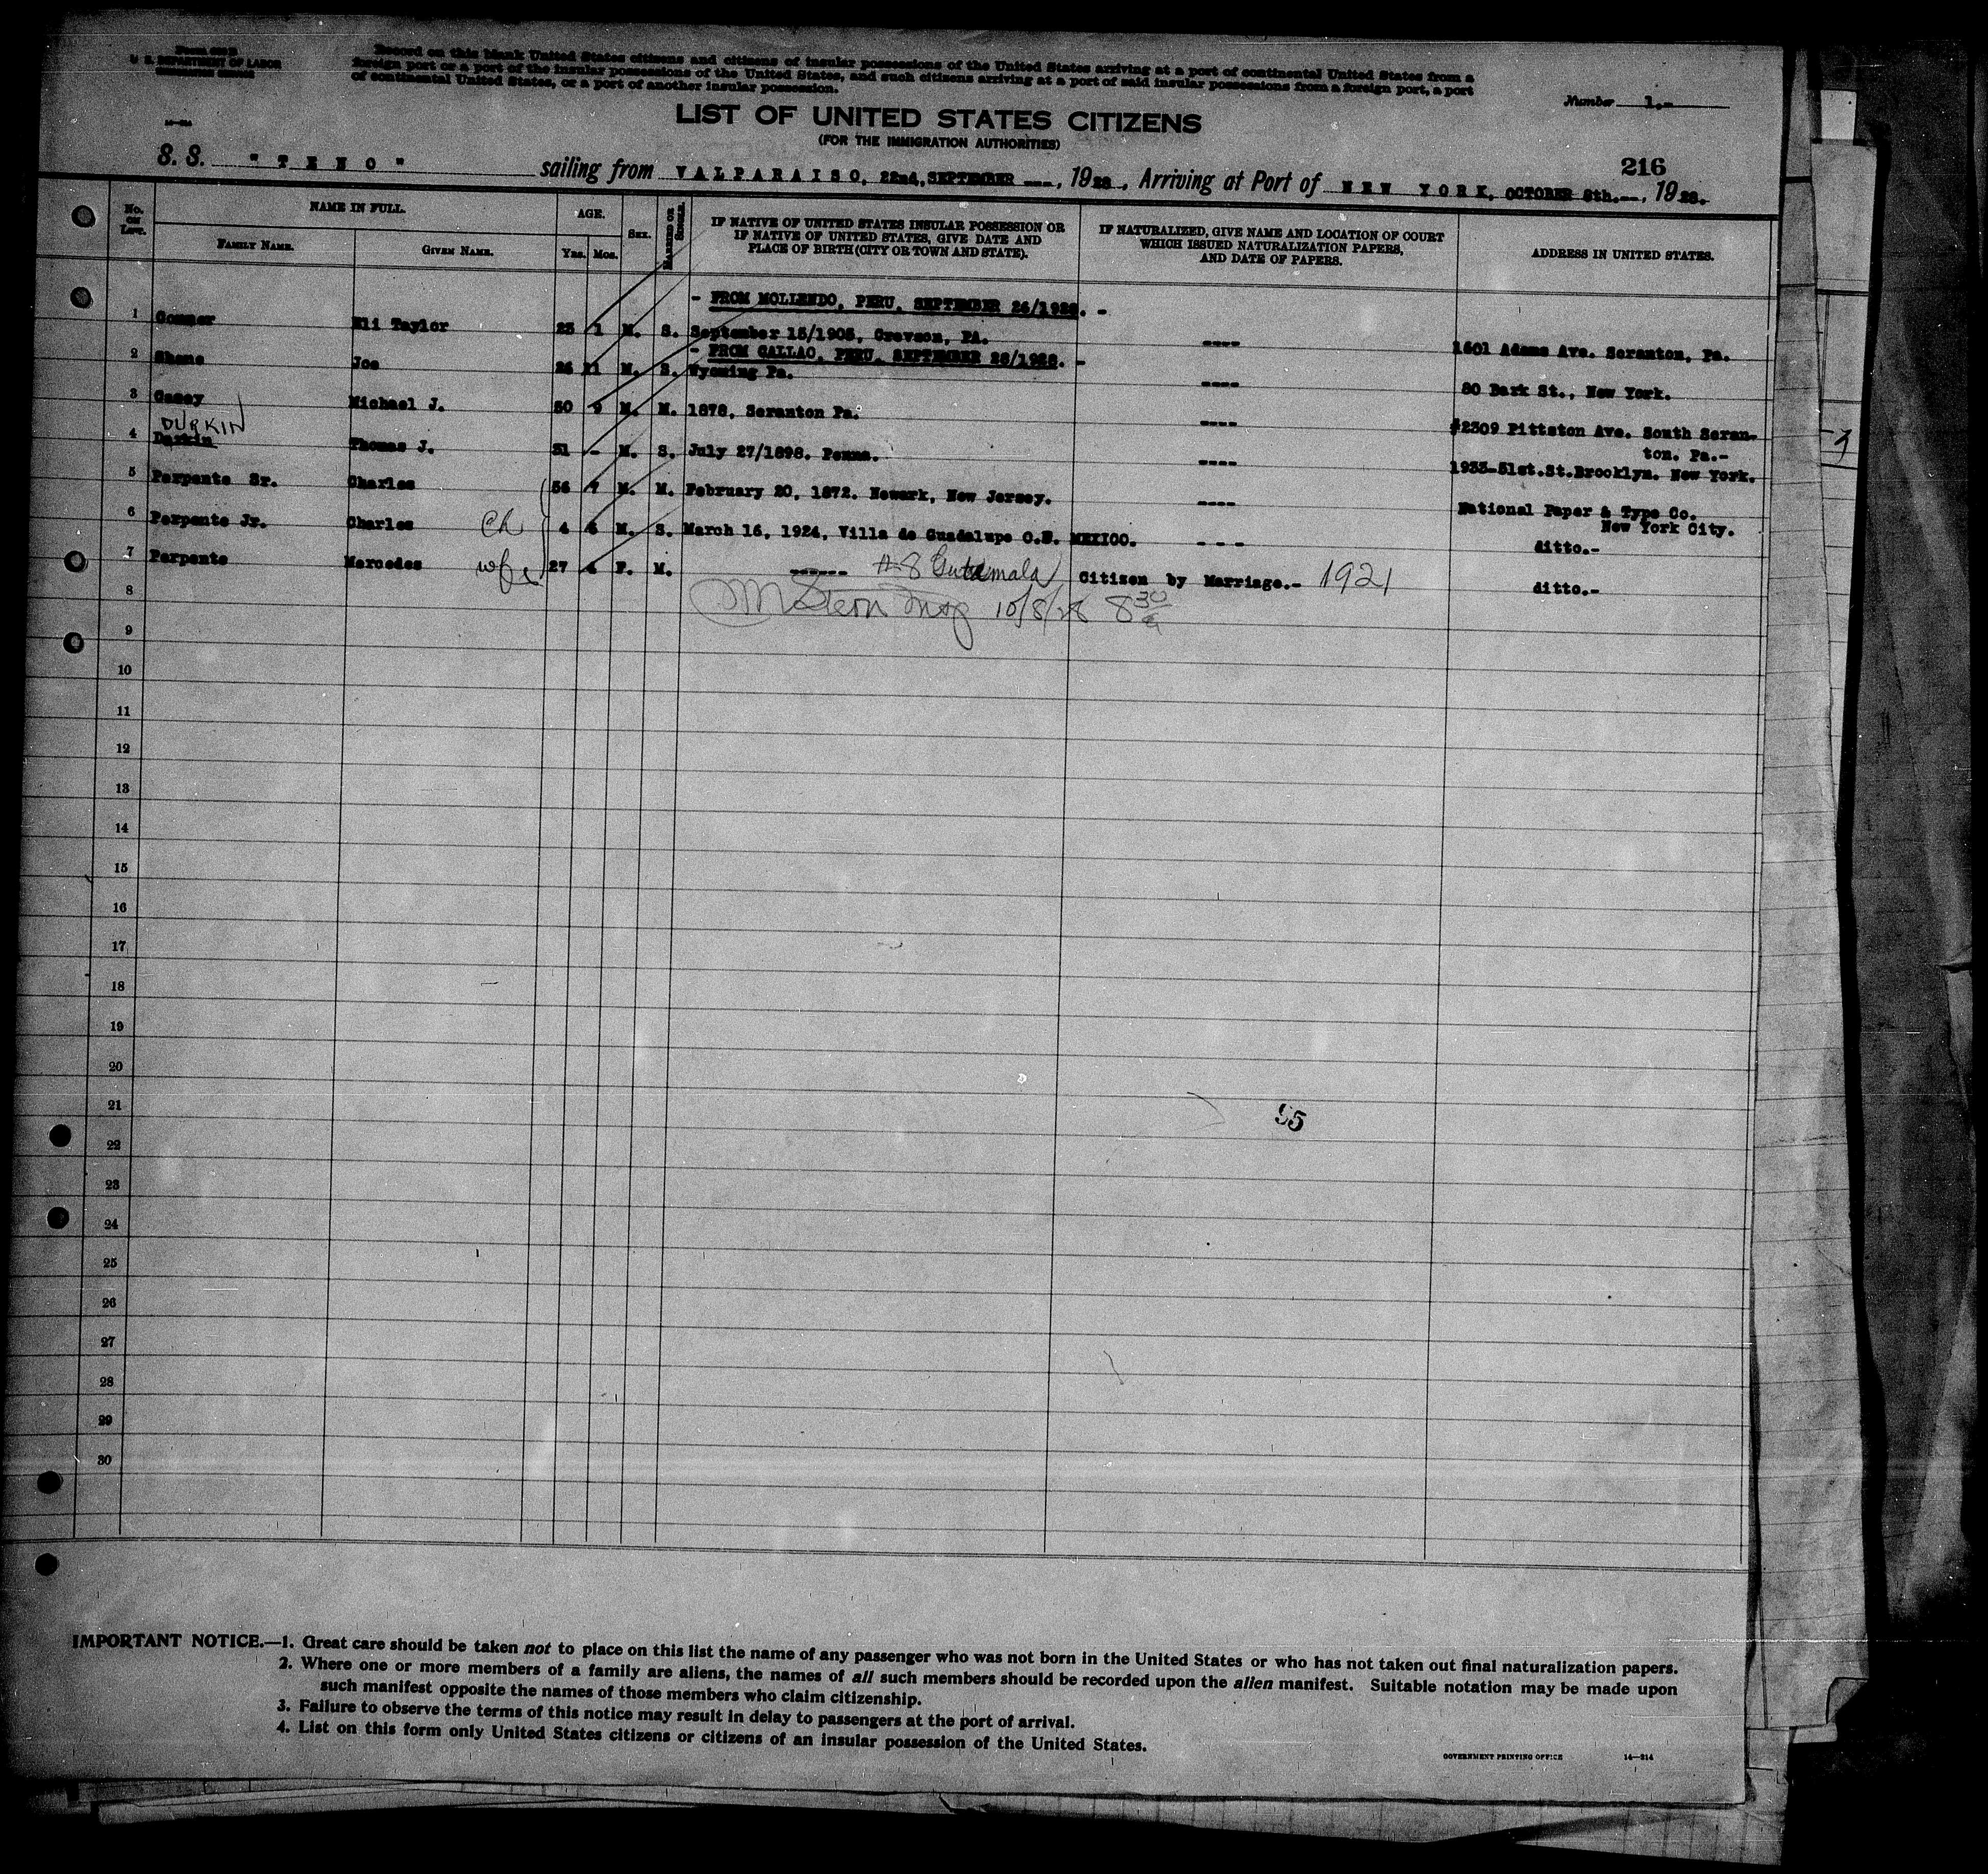 U. S. DEPARTMENT OF LABOR
Record on this blank United States citizens and citizens of insular possessions of the United States arriving at a port of continental United States from a
foreign port or a port of the insular possessions of the United States, and such citizens arriving at a port of said insular possessions from a foreign port, a port
of continental United States, or a port of another insular possession.
Number 1.-
LIST OF UNITED STATES CITIZENS
(FOR THE IMMIGRATION AUTHORITIES)
216
S. S. "TENO" sailing from VALPARAISO, 22nd, SEPTEMBER ---, 1928, Arriving at Port of NEW YORK, OCTOBER 8th.--, 1928.
No. on List. NAME IN FULL. AGE. SEX. MARRIED OR SINGLE. IF NATIVE OF UNITED STATES INSULAR POSSESSION OR IF NATIVE OF UNITED STATES, GIVE DATE AND PLACE OF BIRTH (CITY OR TOWN AND STATE). IF NATURALIZED, GIVE NAME AND LOCATION OF COURT WHICH ISSUED NATURALIZATION PAPERS, AND DATE OF PAPERS. ADDRESS IN UNITED STATES.
FAMILY NAME. GIVEN NAME. Yrs. Mos.
- FROM MOLLENDO, PERU, SEPTEMBER 26/1928. -
1 Eli Taylor 23 1 M. S. September 15/1905, PA. ---- 1601 Adams Ave. Scranton, Pa.
- FROM CALLAO, PERU, SEPTEMBER 28/1928. -
2 Shane Joe 26 11 M. S. Wyoming Pa. ---- 80 St., New York.
3 Michael J. 50 9 M. M. 1878, Scranton Pa. ---- #2309 Pittston Ave. South Scran-
ton. Pa.-
DURKIN
4 Durkin Thomas J. 31 - M. S. July 27/1898. Penna. ---- 1933-51st.St.Brooklyn. New York.
5 Perpente Sr. Charles 56 7 M. M. February 20, 1872. Newark, New Jersey. ---- National Paper & Type Co.
New York City.
6 Perpente Jr. Charles ch 4 6 M. S. March 16, 1924, Villa de Guadalupe MEXICO. - - - ditto.-
7 Perpente Mercedes wife 27 4 F. M. ------ Citizen by Marriage.- 1921 ditto.-
8 10/8/28 8 30
9
10
11
12
13
14
15
16
17
18
19
20
21
95
22
23
24
25
26
27
28
29
30
IMPORTANT NOTICE.—1. Great care should be taken not to place on this list the name of any passenger who was not born in the United States or who has not taken out final naturalization papers.
2. Where one or more members of a family are aliens, the names of all such members should be recorded upon the alien manifest. Suitable notation may be made upon
such manifest opposite the names of those members who claim citizenship.
3. Failure to observe the terms of this notice may result in delay to passengers at the port of arrival.
4. List on this form only United States citizens or citizens of an insular possession of the United States.
GOVERNMENT PRINTING OFFICE 14—214